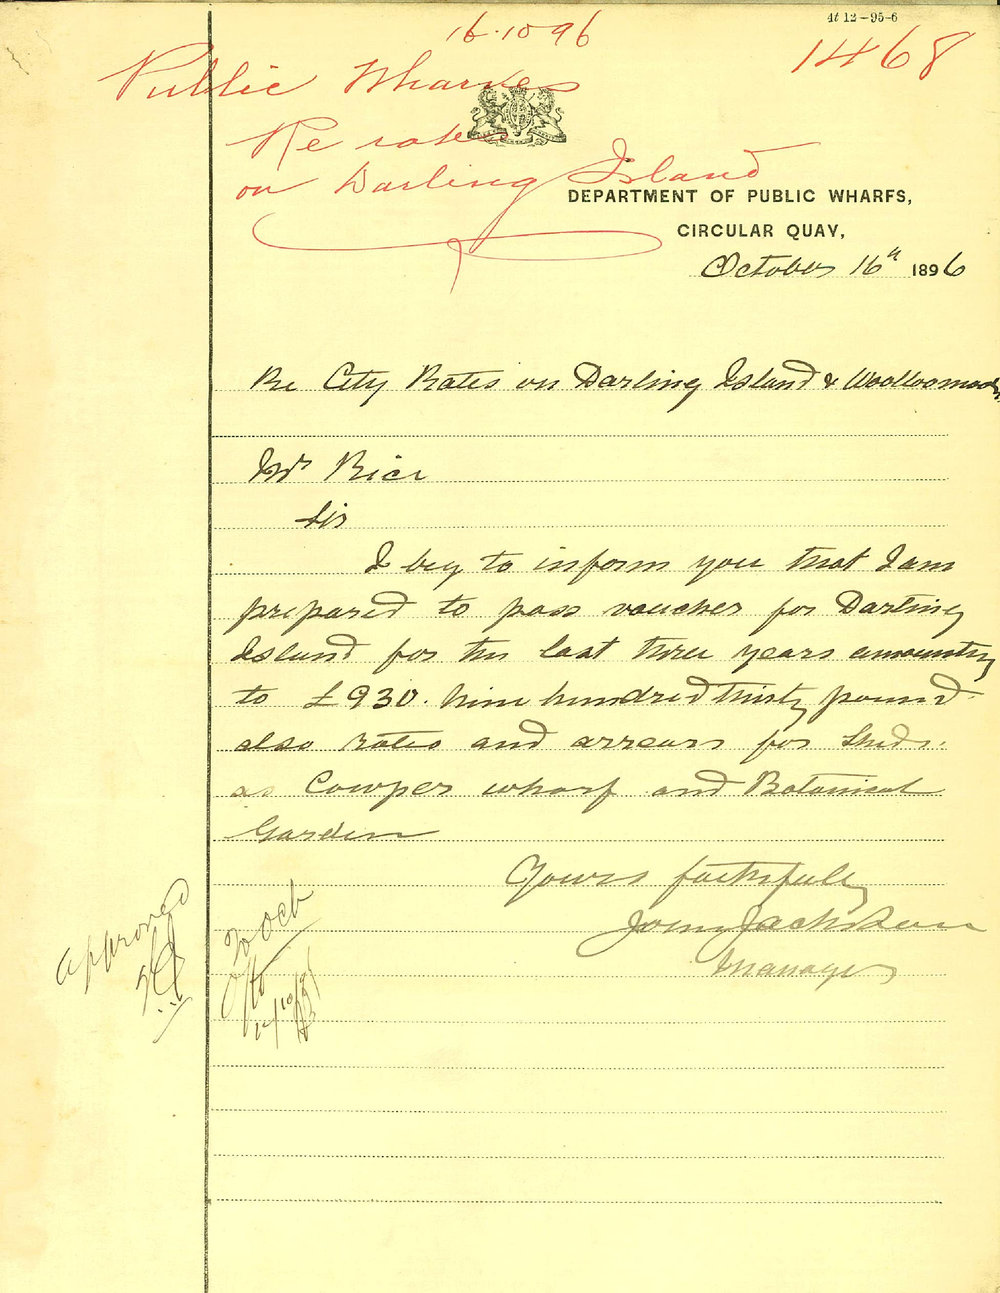 4t 12-95-6
16.10 96
1468
Public Wharves
Re rates
on Darling Island
DEPARTMENT OF PUBLIC WHARFS,
CIRCULAR QUAY,
October 16th 1896
Re City Rates on Darling Island & Woolloomooloo
Mr Rice
Sir
I beg to inform you that I am
prepared to pass voucher for Darling
Island for the last three years amounting
to £930. Nine hundred thirty pound
also rates and arrears for Sheds.
as Cowper wharf and Botanical
Garden
Yours faithfully
Jackson
Manager
approved